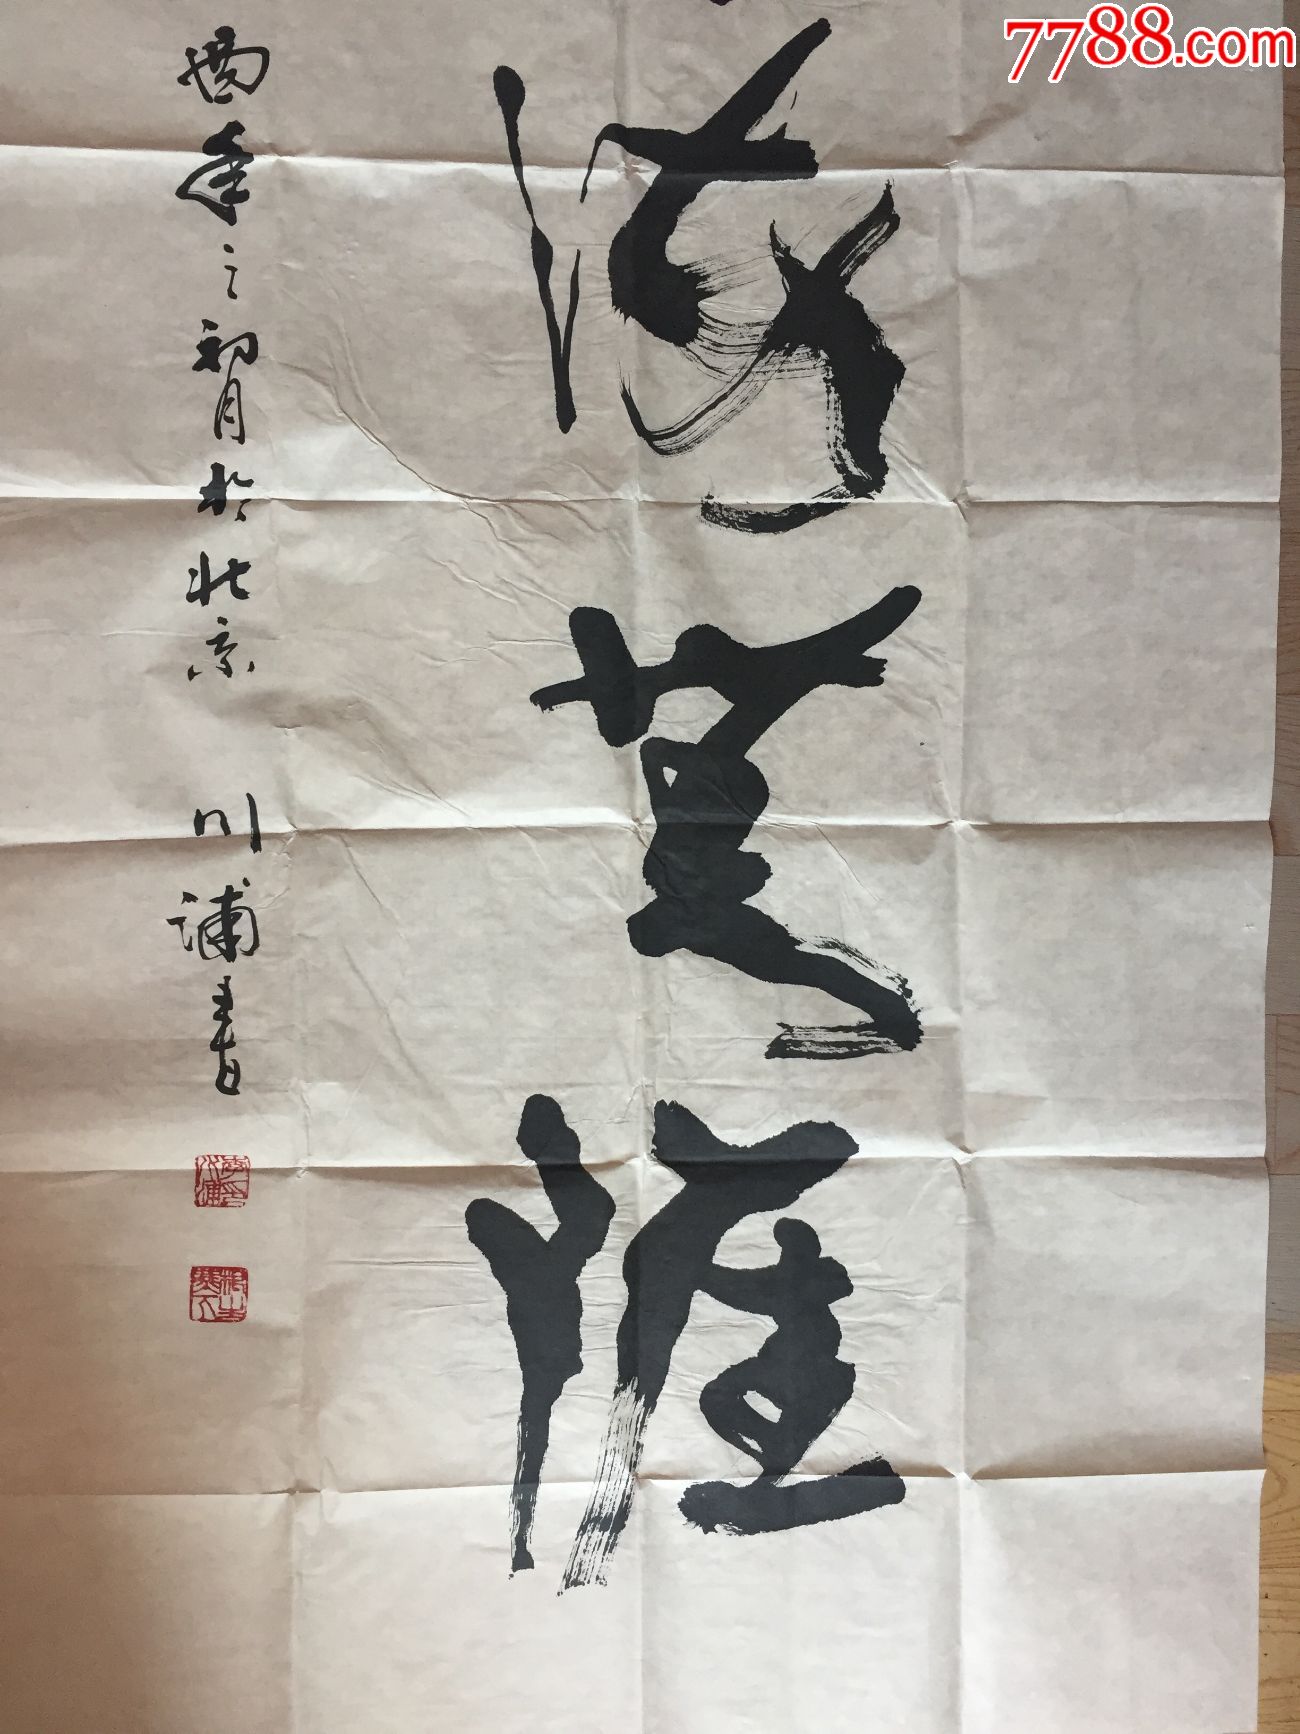 海無涯
酉年之初月於北京
川浦書
7788.com